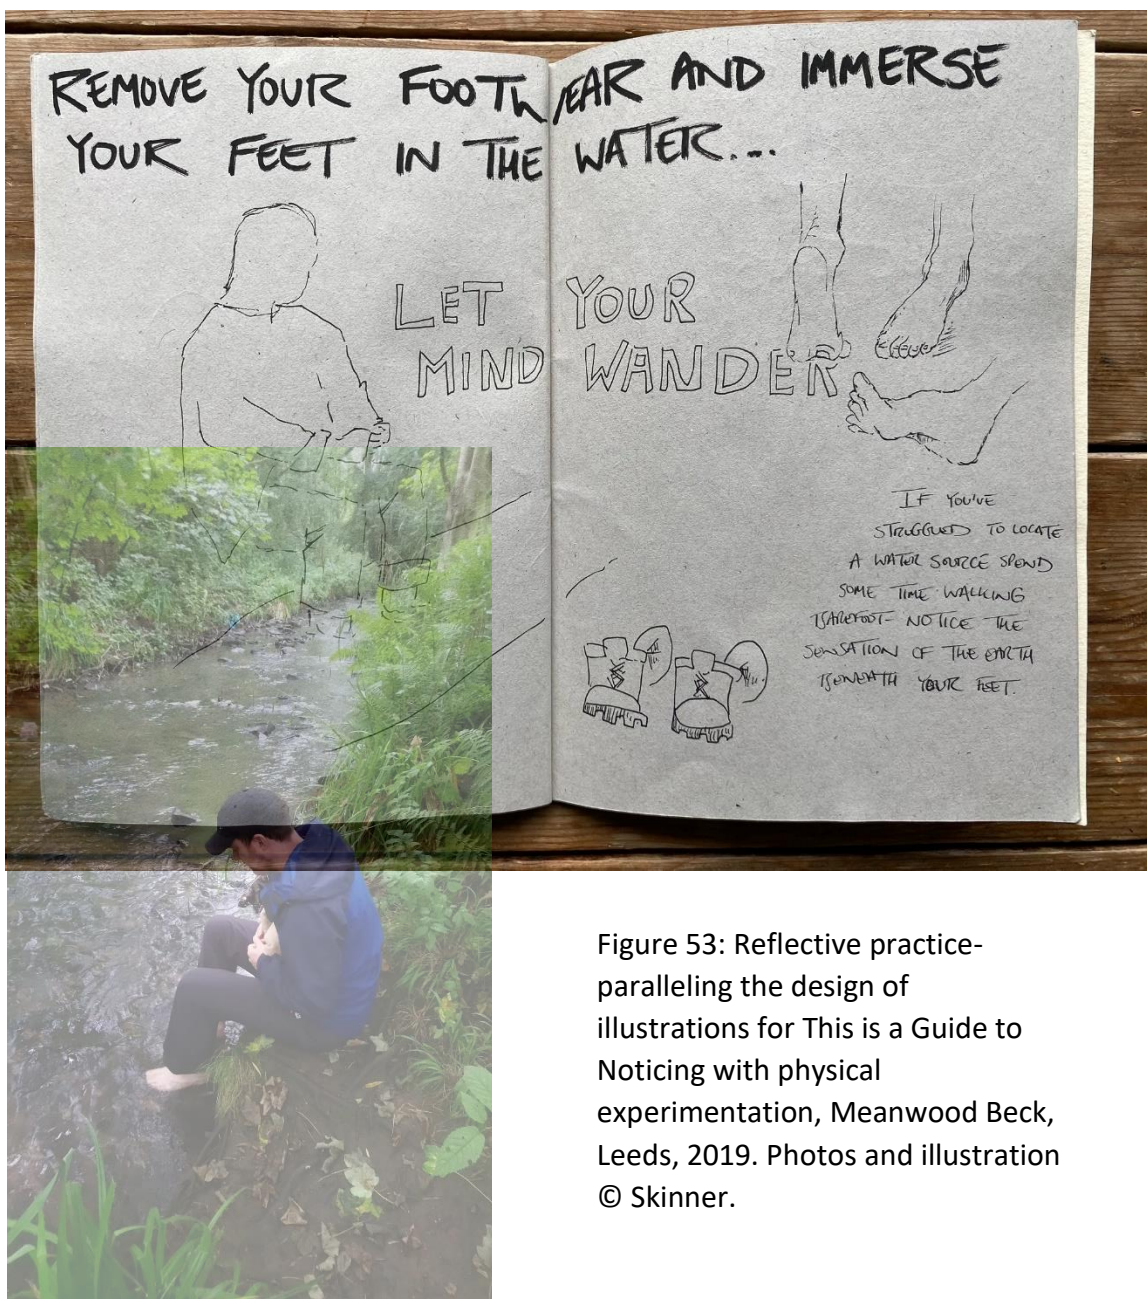 REMOVE YOUR FOOTWEAR AND IMMERSE
YOUR FEET IN THE WATER....
LET YOUR
MIND WANDER
IF YOU'VE
STRUGGLED TO LOCATE
A WATER SOURCE SPEND
SOME TIME WALKING
BAREFOOT- NOTICE THE
SENSATION OF THE EARTH
BENEATH YOUR FEET.
Figure 53: Reflective practice-
paralleling the design of
illustrations for This is a Guide to
Noticing with physical
experimentation, Meanwood Beck,
Leeds, 2019. Photos and illustration
© Skinner.